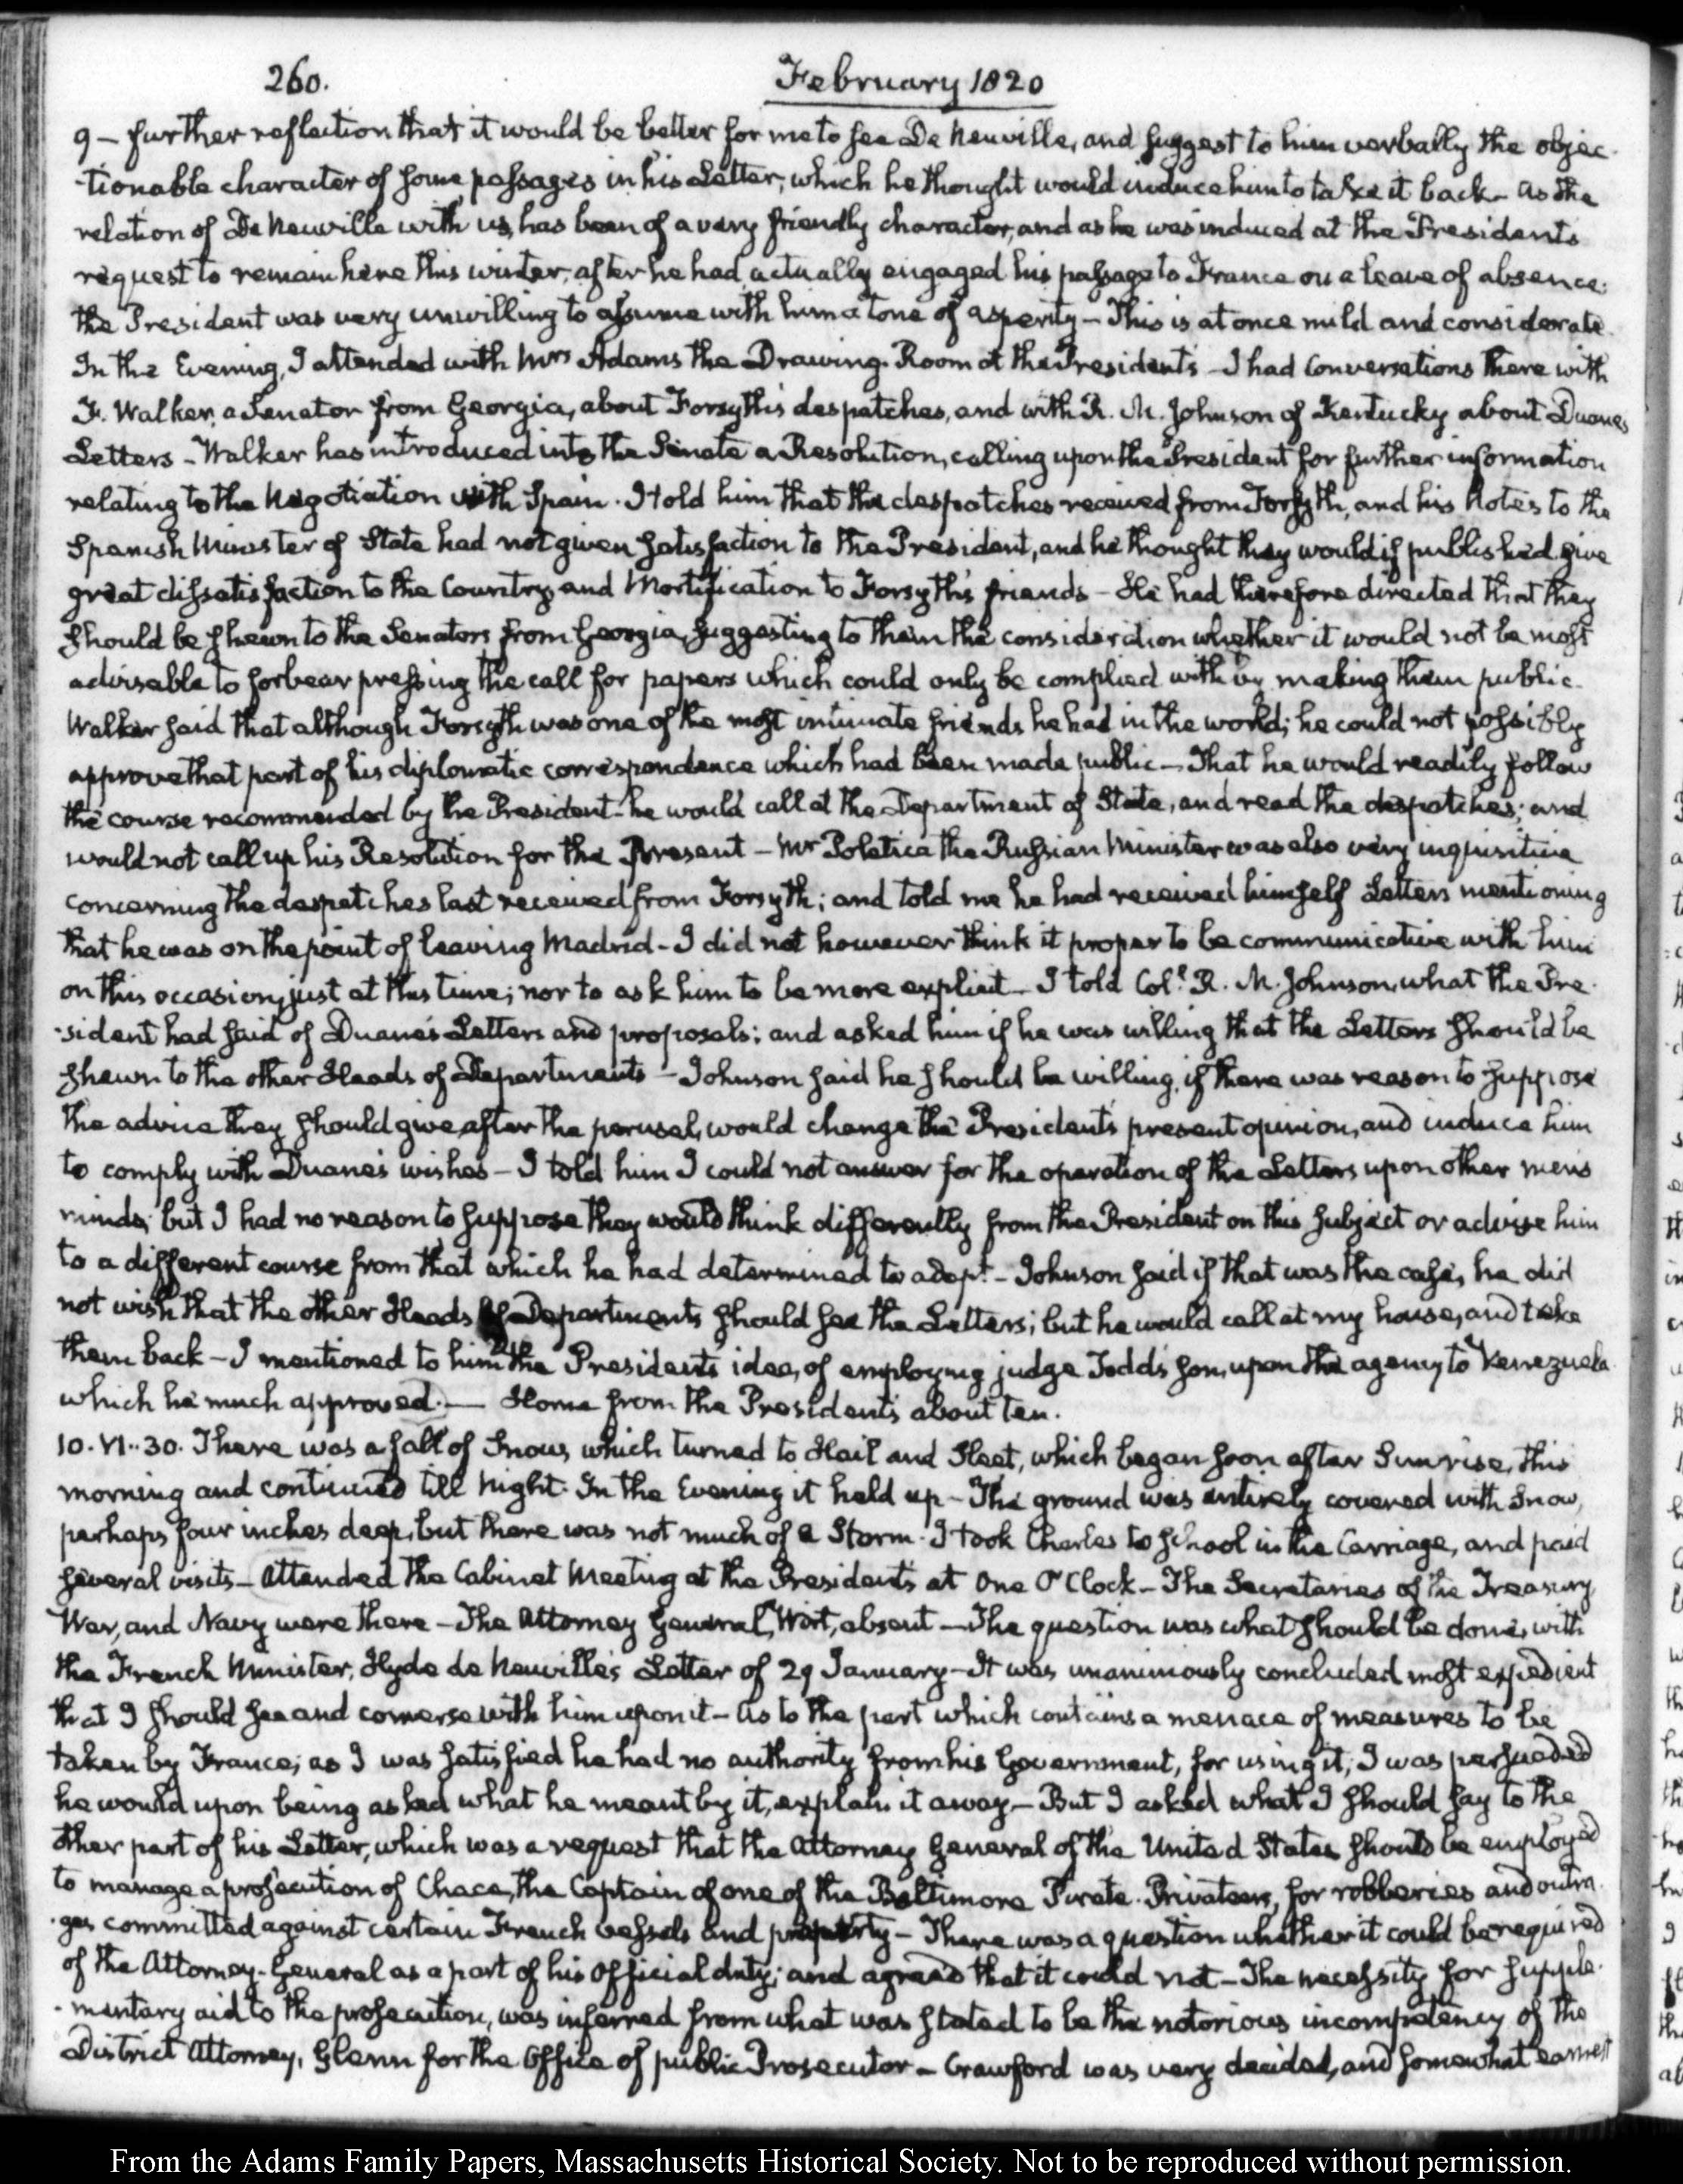 260.
February 1820
9 – further reflection that it would be better for me to see De Neuville, and suggest to him verbally the objec-
-tionable character of some passages in his Letter, which he thought would induce him to take it back – As the
relation of De Neuville with us, has been of a very friendly character, and as he was induced at the Presidents
request to remain here this winter, after he had actually engaged his passage to France on a leave of absence,
the President was very unwilling to assume with him a tone of asperity – This is at once mild and considerate.
In the Evening, I attended with Mrs Adams the Drawing-Room at the Presidents – I had Conversations there with
F. Walker, a Senator from Georgia, about Forsyth's despatches, and with R. M. Johnson of Kentucky about Duane's
Letters – Walker has introduced into the Senate a Resolution, calling upon the President for further information
relating to the Negotiation with Spain. I told him that the despatches received from Forsyth, and his Notes to the
Spanish Minister of State had not given satisfaction to the President, and he thought they would if published give
great dissatisfaction to the Country, and Mortification to Forsyth's friends – He had therefore directed that they
should be shewn to the Senators from Georgia, suggesting to them the consideration whether it would not be most
advisable to forbear pressing the call for papers which could only be complied with by making them public.
Walker said that although Forsyth was one of the most intimate friends he had in the world; he could not possibly
approve that part of his diplomatic correspondence which had been made public – That he would readily follow
the course recommended by the President – he would call at the Department of State, and read the despatches; and
would not call up his Resolution for the Present – Mr Poletica the Russian Minister was also very inquisitive
concerning the despatches last received from Forsyth; and told me he had received himself Letters mentioning
that he was on the point of leaving Madrid – I did not however think it proper to be communicative with him
on this occasion, just at this time; nor to ask him to be more explicit – I told Coll. R. M. Johnson, what the Pre-
-sident had said of Duane's Letters and proposals; and asked him if he was willing that the Letters should be
shewn to the other Heads of Departments – Johnson said he should be willing, if there was reason to suppose
the advice they should give, after the perusal, would change the President's present opinion, and induce him
to comply with Duane's wishes – I told him I could not answer for the operation of the Letters upon other men's
minds; but I had no reason to suppose they would think differently from the President on this subject or advise him
to a different course from that which he had determined to adopt – Johnson said if that was the case, he did
not wish that the other Heads of Departments should see the Letters; but he would call at my house, and take
them back – I mentioned to him the Presidents' idea, of employing judge Todd's son, upon the agency to Venezuela
which he much approved. — Home from the President's about ten.
10. VI..30. There was a fall of Snow, which turned to Hail and Sleet, which began soon after Sunrise, this
morning and continued till Night. In the Evening it held up – The ground was entirely covered with Snow,
perhaps four inches deep, but there was not much of a Storm. I took Charles to school in the Carriage, and paid
several visits – Attended the Cabinet Meeting at the President's at One O'Clock – The Secretaries of the Treasury
War, and Navy were there – The Attorney General, Wirt, absent – The question was what should be done, with
the French Minister, Hyde de Neuville's Letter of 29 January – It was unanimously concluded most expedient
that I should see and converse with him upon it – As to the part which contains a menace of measures to be
taken by France; as I was satisfied he had no authority from his Government, for using it, I was persuaded
he would upon being asked what he meant by it, explain it away – But I asked what I should say to the
other part of his Letter, which was a request that the Attorney General of the United States should be employed
to manage a prosecution of Chace, the Captain of one of the Baltimore Pirate-Privateers, for robberies and outra-
-ges committed against certain French vessels and property – There was a question whether it could be required
of the Attorney-General as a part of his Official duty; and agreed that it could not – The necessity for supple-
-mentary aid to the prosecution, was inferred from what was stated to be the notorious incompetency of the
District Attorney, Glenn for the Office of public Prosecutor – Crawford was very decided, and somewhat earnest
From the Adams Family Papers, Massachusetts Historical Society. Not to be reproduced without permission.